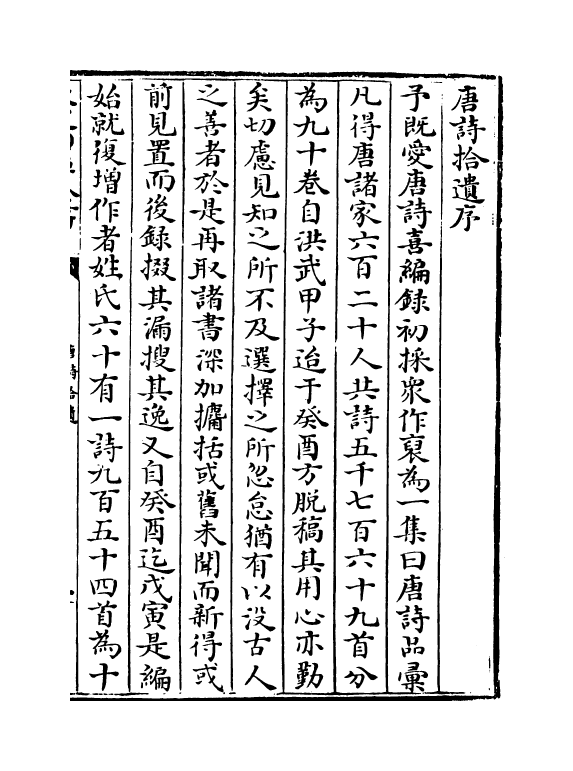 唐詩拾遺序
予既愛唐詩喜編録初採衆作裒為一集曰唐詩品彙
凡得唐諸家六百二十人共詩五千七百六十九首分
為九十卷自洪武甲子迨于癸酉方脱稿其用心亦勤
矣切慮見知之所不及選擇之所忽怠猶有以没古人
之善者於是再取諸書深加擴括或舊未聞而新得或
前見置而後録掇其漏搜其逸又自癸酉迄戊寅是編
始就復增作者姓氏六十有一詩九百五十四首為十
唐詩拾遺